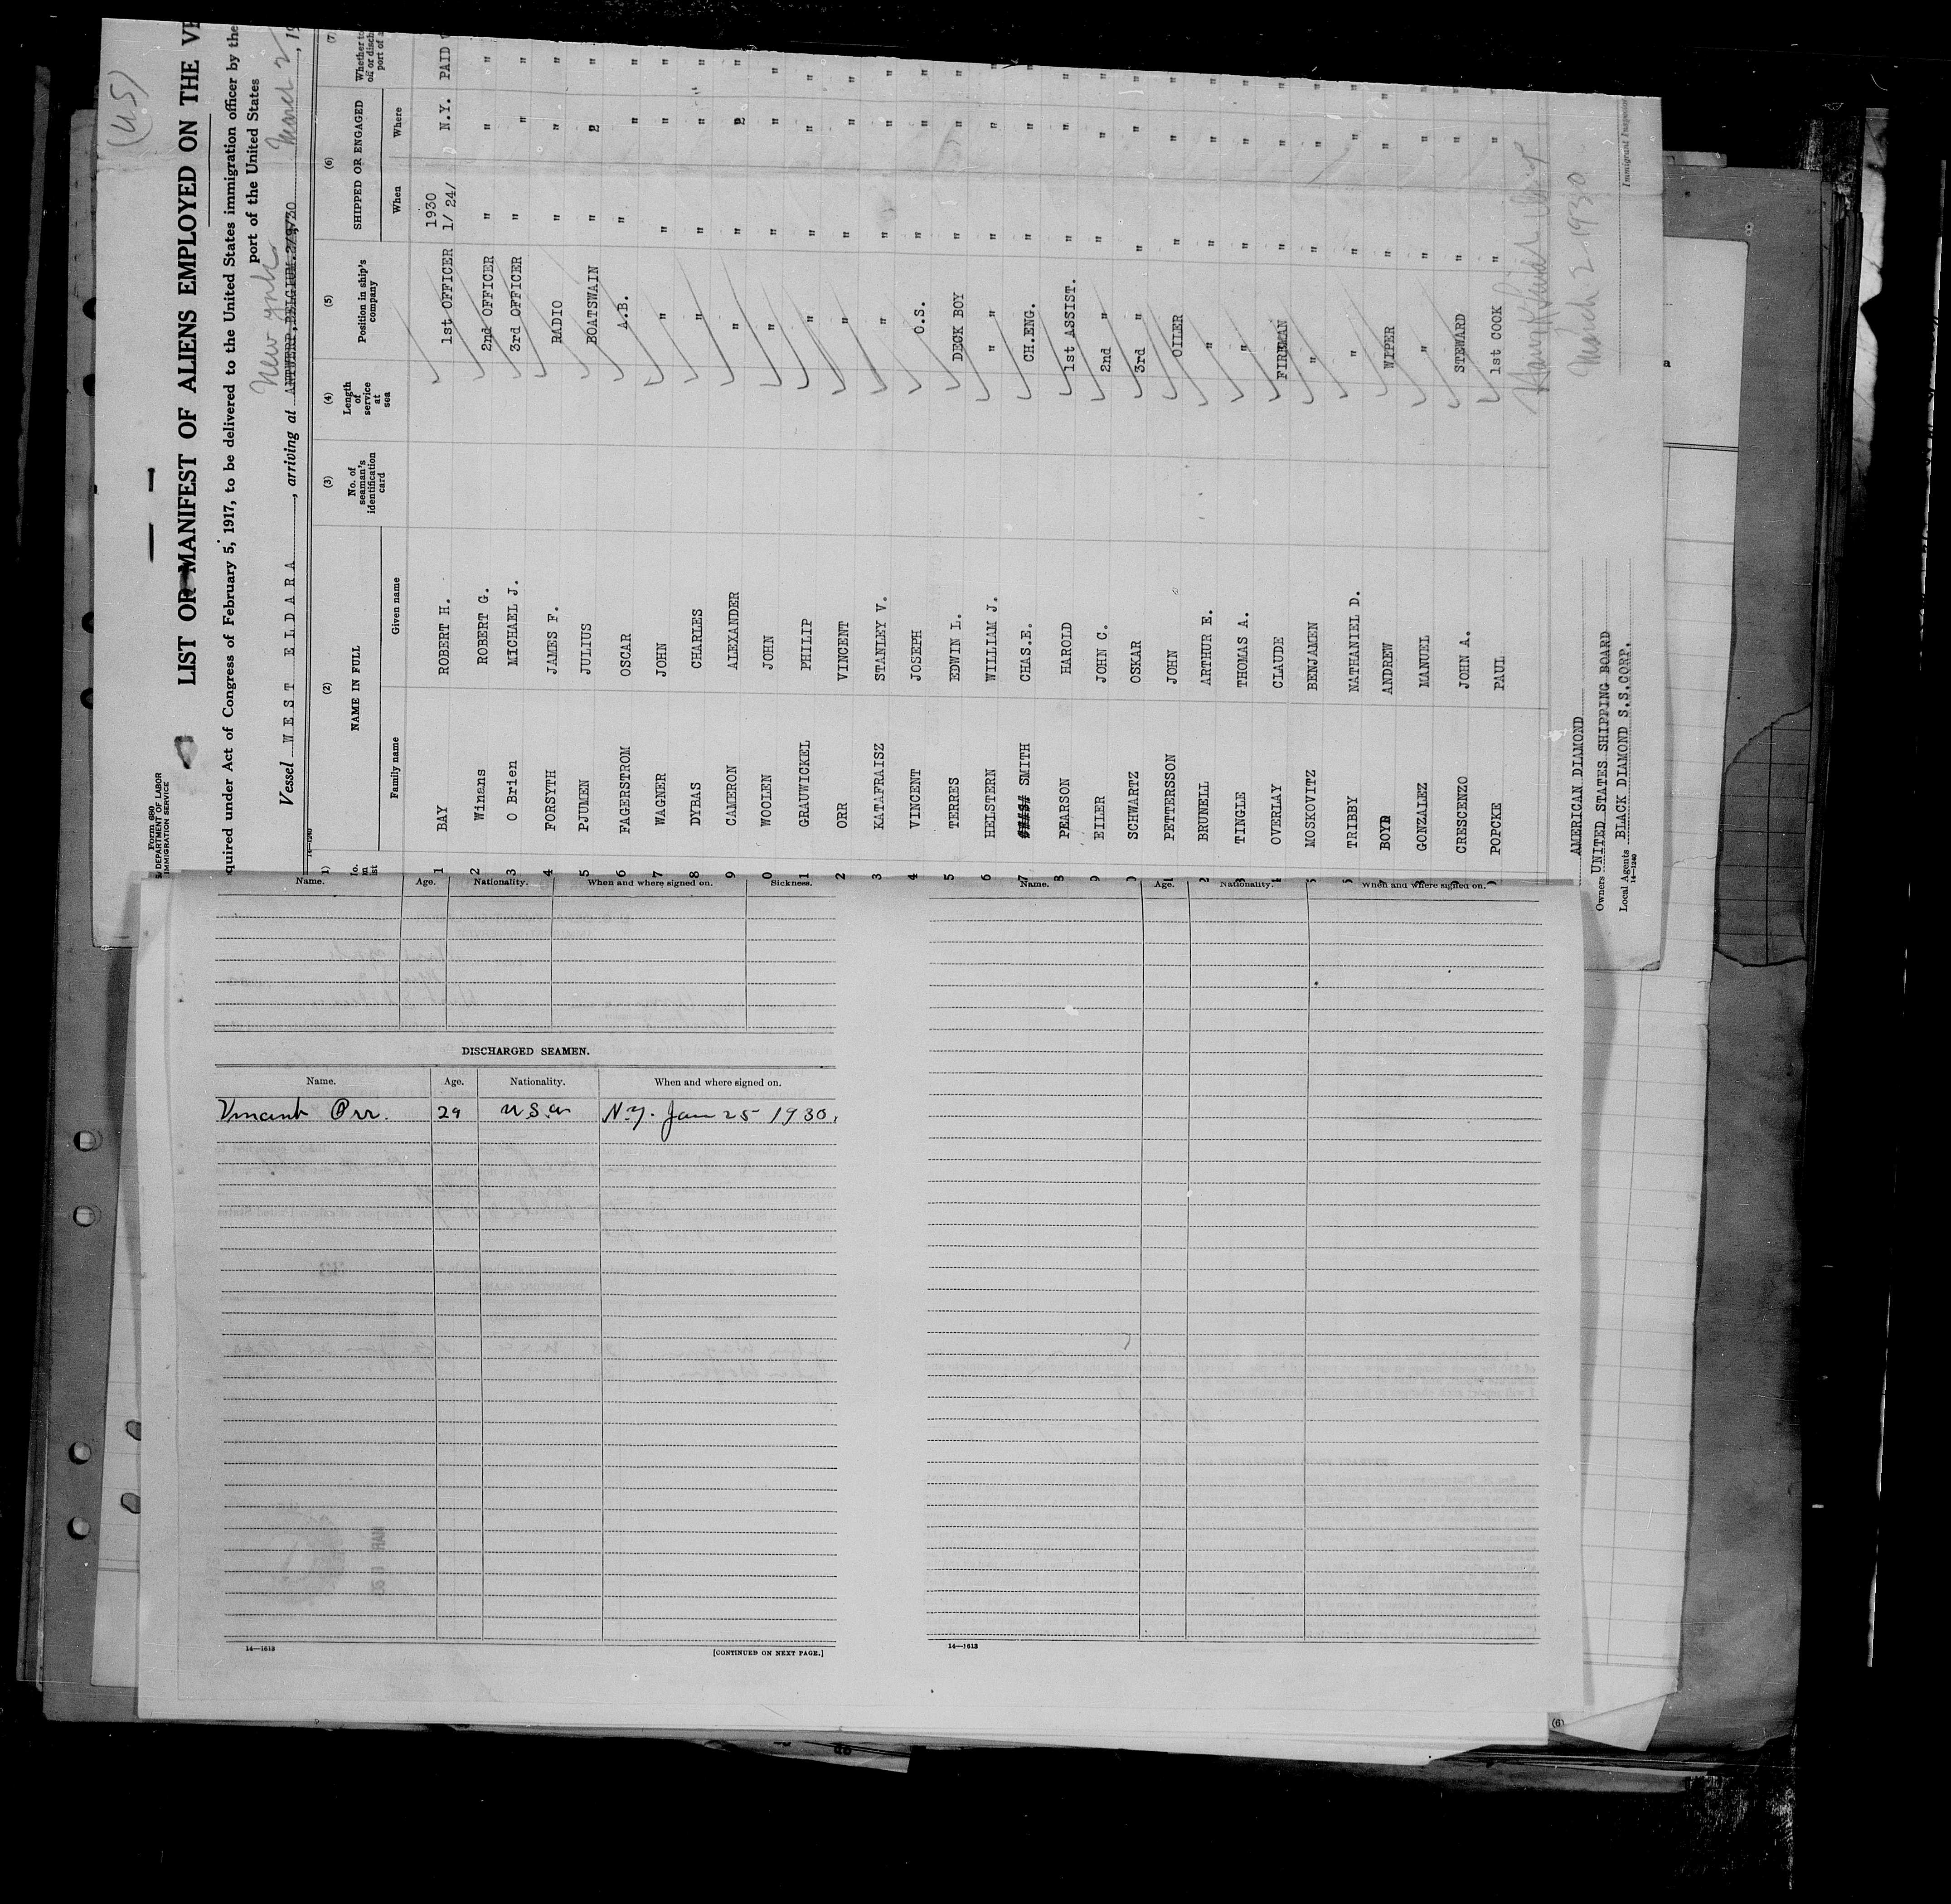 (U.S)
Form 680
DEPARTMENT OF LABOR
IMMIGRATION SERVICE
LIST OR MANIFEST OF ALIENS EMPLOYED ON THE
quired under Act of Congress of February 5, 1917, to be delivered to the United States immigration officer by the
port of the United States
New york
Vessel WEST ELDARA, arriving at ANTWERP, BELGIUM. 2/9/30
(2) (3) (4) (5) (6) (7)
NAME IN FULL No. of seaman's identification card Length of service at sea Position in ship's company SHIPPED OR ENGAGED
Family name Given name When Where
1930
1 BAY ROBERT H. 1st OFFICER 1/24/ N.Y. PAID
2 Winans ROBERT G. 2nd OFFICER " " "
3 O Brien MICHAEL J. 3rd OFFICER " " "
4 FORSYTH JAMES F. RADIO " " "
5 PJUMEN JULIUS BOATSWAIN " " "
6 FAGERSTROM OSCAR A.B. " " "
7 WAGNER JOHN " " " "
8 DYBAS CHARLES " " " "
9 CAMERON ALEXANDER " " " "
0 WOOLEN JOHN " " " "
11 GRAUWICKEL PHILIP " " " "
2 ORR VINCENT " " " "
3 KATAFRAISZ STANLEY V. " " " "
4 VINCENT JOSEPH O.S. " " "
5 TERRES EDWIN L. DECK BOY " " "
6 HELSTERN WILLIAM J. " " " " "
7 SMITH CHAS.E. CH.ENG. " " "
8 PEARSON HAROLD 1st ASSIST. " " "
9 EILER JOHN C. 2nd " " " "
0 SCHWARTZ OSKAR 3rd " " " "
PETTERSSON JOHN OILER " " "
BRUNELL ARTHUR E. " " " "
TINGLE THOMAS A. " " " "
OVERLAY CLAUDE FIREMAN " " "
MOSKOVITZ BENJAMEN " " " "
TRIBBY NATHANIEL D. " " " "
BOYD ANDREW WIPER " " "
GONZALEZ MANUEL " " " "
CRESCENZO JOHN A. STEWARD " " "
POPCKE PAUL 1st COOK " " "
March 2 1930
Immigrant Inspector
AMERICAN DIAMOND
Owners UNITED STATES SHIPPING BOARD
Local Agents BLACK DIAMOND S.S.CORP.
14-1240
Name. Age. Nationality. When and where signed on. Sickness.
DISCHARGED SEAMEN.
Name. Age. Nationality. When and where signed on.
Vincent Orr. 29 U S a N.Y. Jan 25 1930.
14—1613
[CONTINUED ON NEXT PAGE.]
Name. Age. Nationality. When and where signed on.
14—1613
(6)